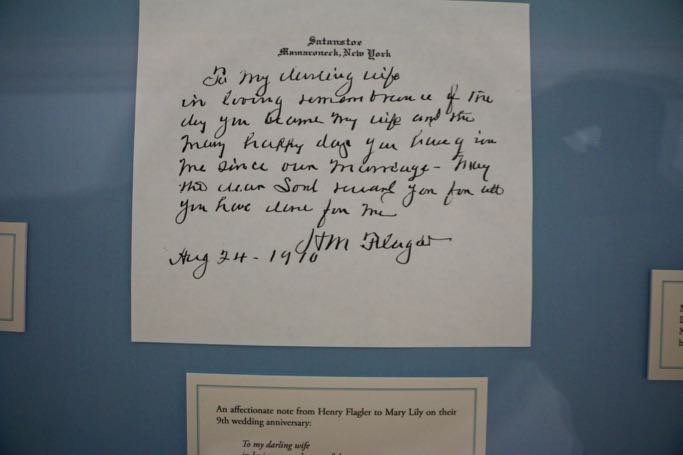 Satanstoe
Mamaroneck, New York
To my darling wife
in loving remembrance of the
day you became my wife and the
many happy days you have given
me since our marriage - May
the dear Lord reward you for all
you have done for me
HM Flagler
Aug 24 - 1910
An affectionate note from Henry Flagler to Mary Lily on their
9th wedding anniversary:
To my darling wife